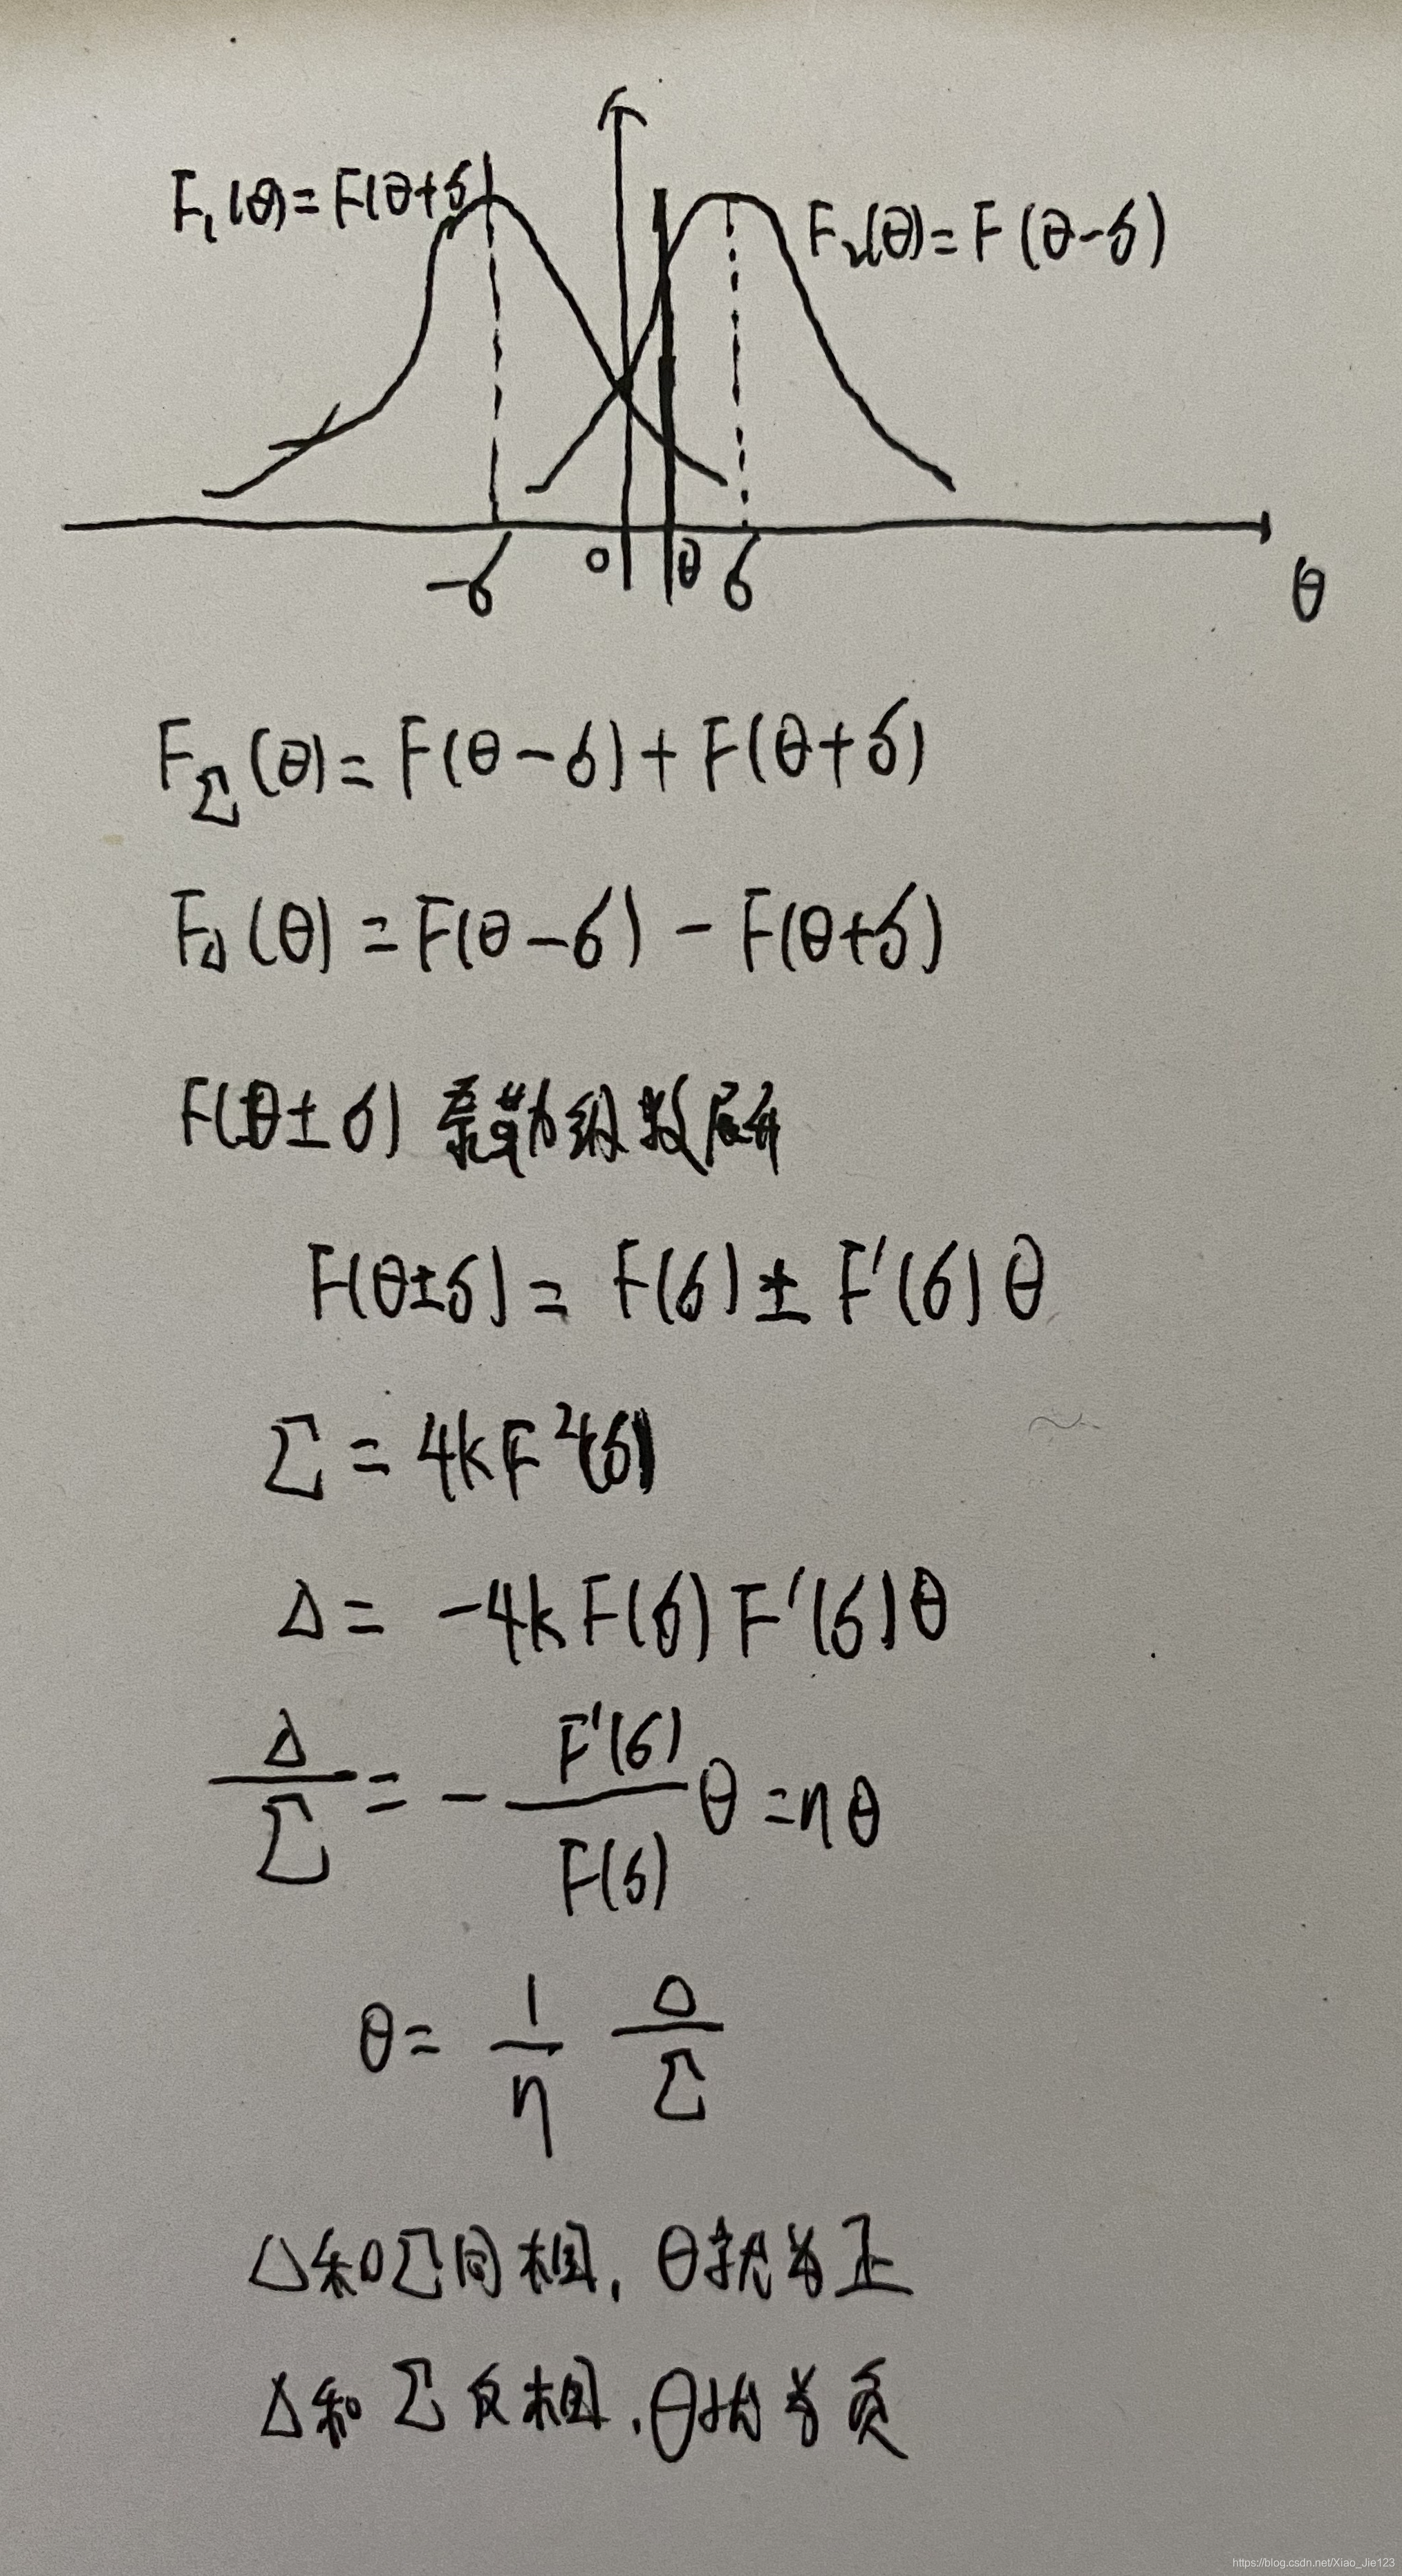 F₁(θ)=F(θ+δ)
F₂(θ)=F(θ-δ)
-δ 0 θ δ θ
F_Σ(θ)=F(θ-δ)+F(θ+δ)
F_Δ(θ)=F(θ-δ)-F(θ+δ)
F(θ±δ) 泰勒级数展开
F(θ±δ)=F(δ)±F′(δ)θ
Σ=4kF²(δ)
Δ=-4kF(δ)F′(δ)θ
Δ/Σ=-F′(δ)/F(δ) θ=ηθ
θ=1/η Δ/Σ
Δ和Σ同相,θ就为正
Δ和Σ反相,θ就为负
https://blog.csdn.net/Xiao_Jie123